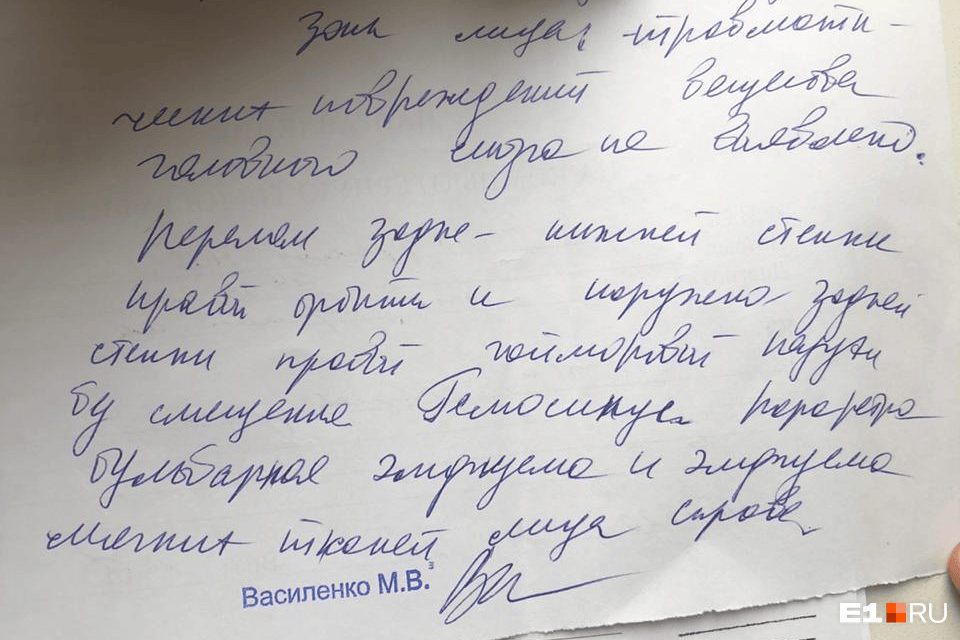 зоны лица, травмати-
ческих повреждений вещества
головного мозга не выявлено.
Перелом задне-нижней стенки
правой орбиты и наружно-задней
стенки правой гайморовой пазухи
без смещения. Гемосинус. параретро
бульбарная эмфизема и эмфизема
мягких тканей лица справа.
Василенко М.В.
E1.RU